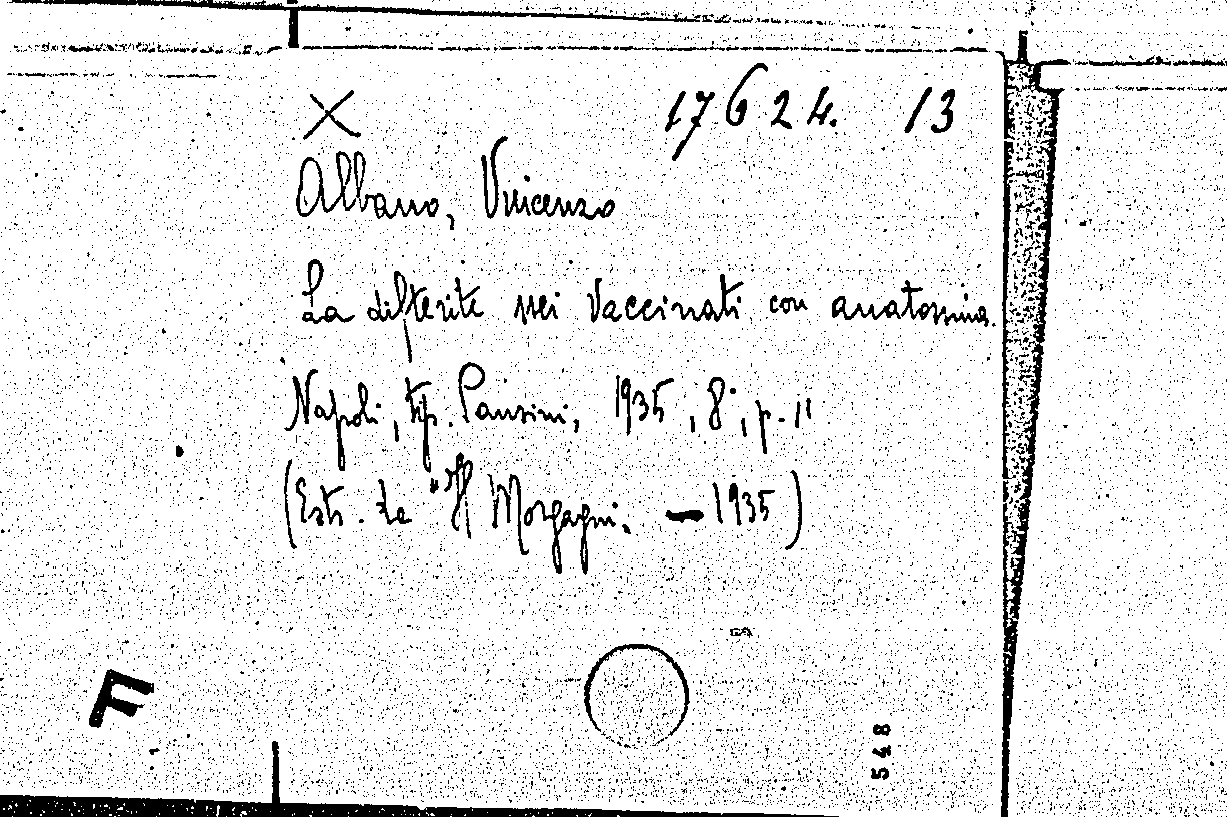 X 17624. 13
Albano, Vincenzo
La difterite nei vaccinati con anatossina.
Napoli, tip. Pansini, 1935, 8°, p. 11
(Estr. da "Il Morgagni. — 1935)
F
548